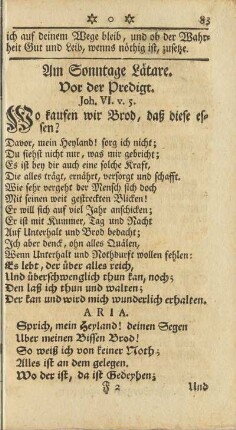 ☼ o ☼ 83
ich auf deinem Wege bleib, und ob der Wahr-
heit Gut und Leib, wenns nöthig ist, zusetze.
Am Sonntage Lätare.
Vor der Predigt.
Joh. VI. v. 5.
Wo kaufen wir Brod, daß diese es-
sen?
Davor, mein Heyland! sorg ich nicht;
Du siehst nicht nur, was mir gebricht;
Es ist bey dir auch eine solche Kraft,
Die alles trägt, ernährt, versorgt und schafft.
Wie sehr vergeht der Mensch sich doch
Mit seinen weit gestreckten Blicken!
Er will sich auf viel Jahr anschicken;
Er ist mit Kummer, Tag und Nacht
Auf Unterhalt und Brod bedacht;
Ich aber denck, ohn alles Quälen,
Wenn Unterhalt und Nothdurft wollen fehlen:
Es lebt, der über alles reich,
Und überschwenglich thun kan, noch;
Den laß ich thun und walten;
Der kan und wird mich wunderlich erhalten.
ARIA.
Sprich, mein Heyland! deinen Segen
Uber meinen Bissen Brod!
So weiß ich von keiner Noth;
Alles ist an dem gelegen.
Wo der ist, da ist Gedeyhen;
F 2 Und